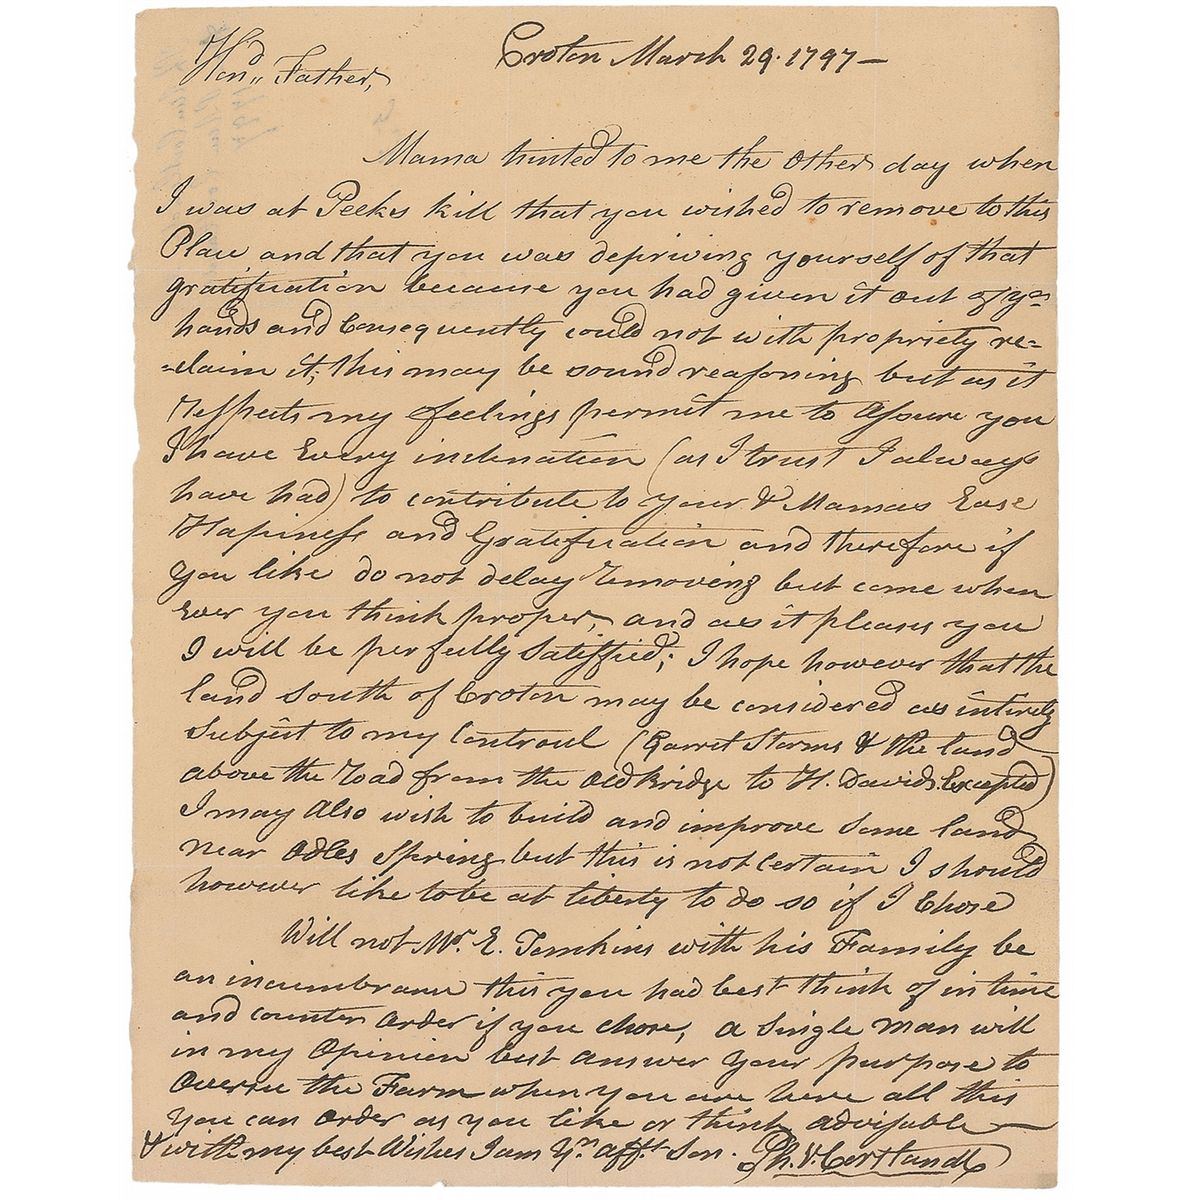 Croton March 29. 1797 —
Hond,, Father,
Mama hinted to me the Other day when
I was at Peeks kill that you wished to remove to this
Place and that you was depriving yourself of that
gratification because you had given it out of yr
hands and Consequently could not with propriety re=
=claim it; this may be sound reasoning but as it
respects my feelings permit me to Assure you
I have Every inclination (as I trust I always
have had) to contribute to your & Mamas Ease
Hapiness and Gratification and therefore if
you like do not delay removing but come when
Ever you think proper, and as it pleases you
I will be perfectly Satisfied; I hope however that the
land South of Croton may be considered as intirely
Subject to my Controul (Garret Storms & the land
above the road from the Old Bridge to H. Davids Excepted)
I may Also wish to build and improve some land
near Odles Spring but this is not Certain I should
however like to be at liberty to do so if I Chose
Will not Mr. E. Jemkins with his Family be
an incumbrance this you had best think of in time
and counter Order if you chose, a Single Man will
in my Opinion best answer your purpose to
Oversee the Farm when you are here all this
you can Order as you like or think advisable —
& with my best Wishes I am Yr. afft. Son. Ph. V. Cortlandt